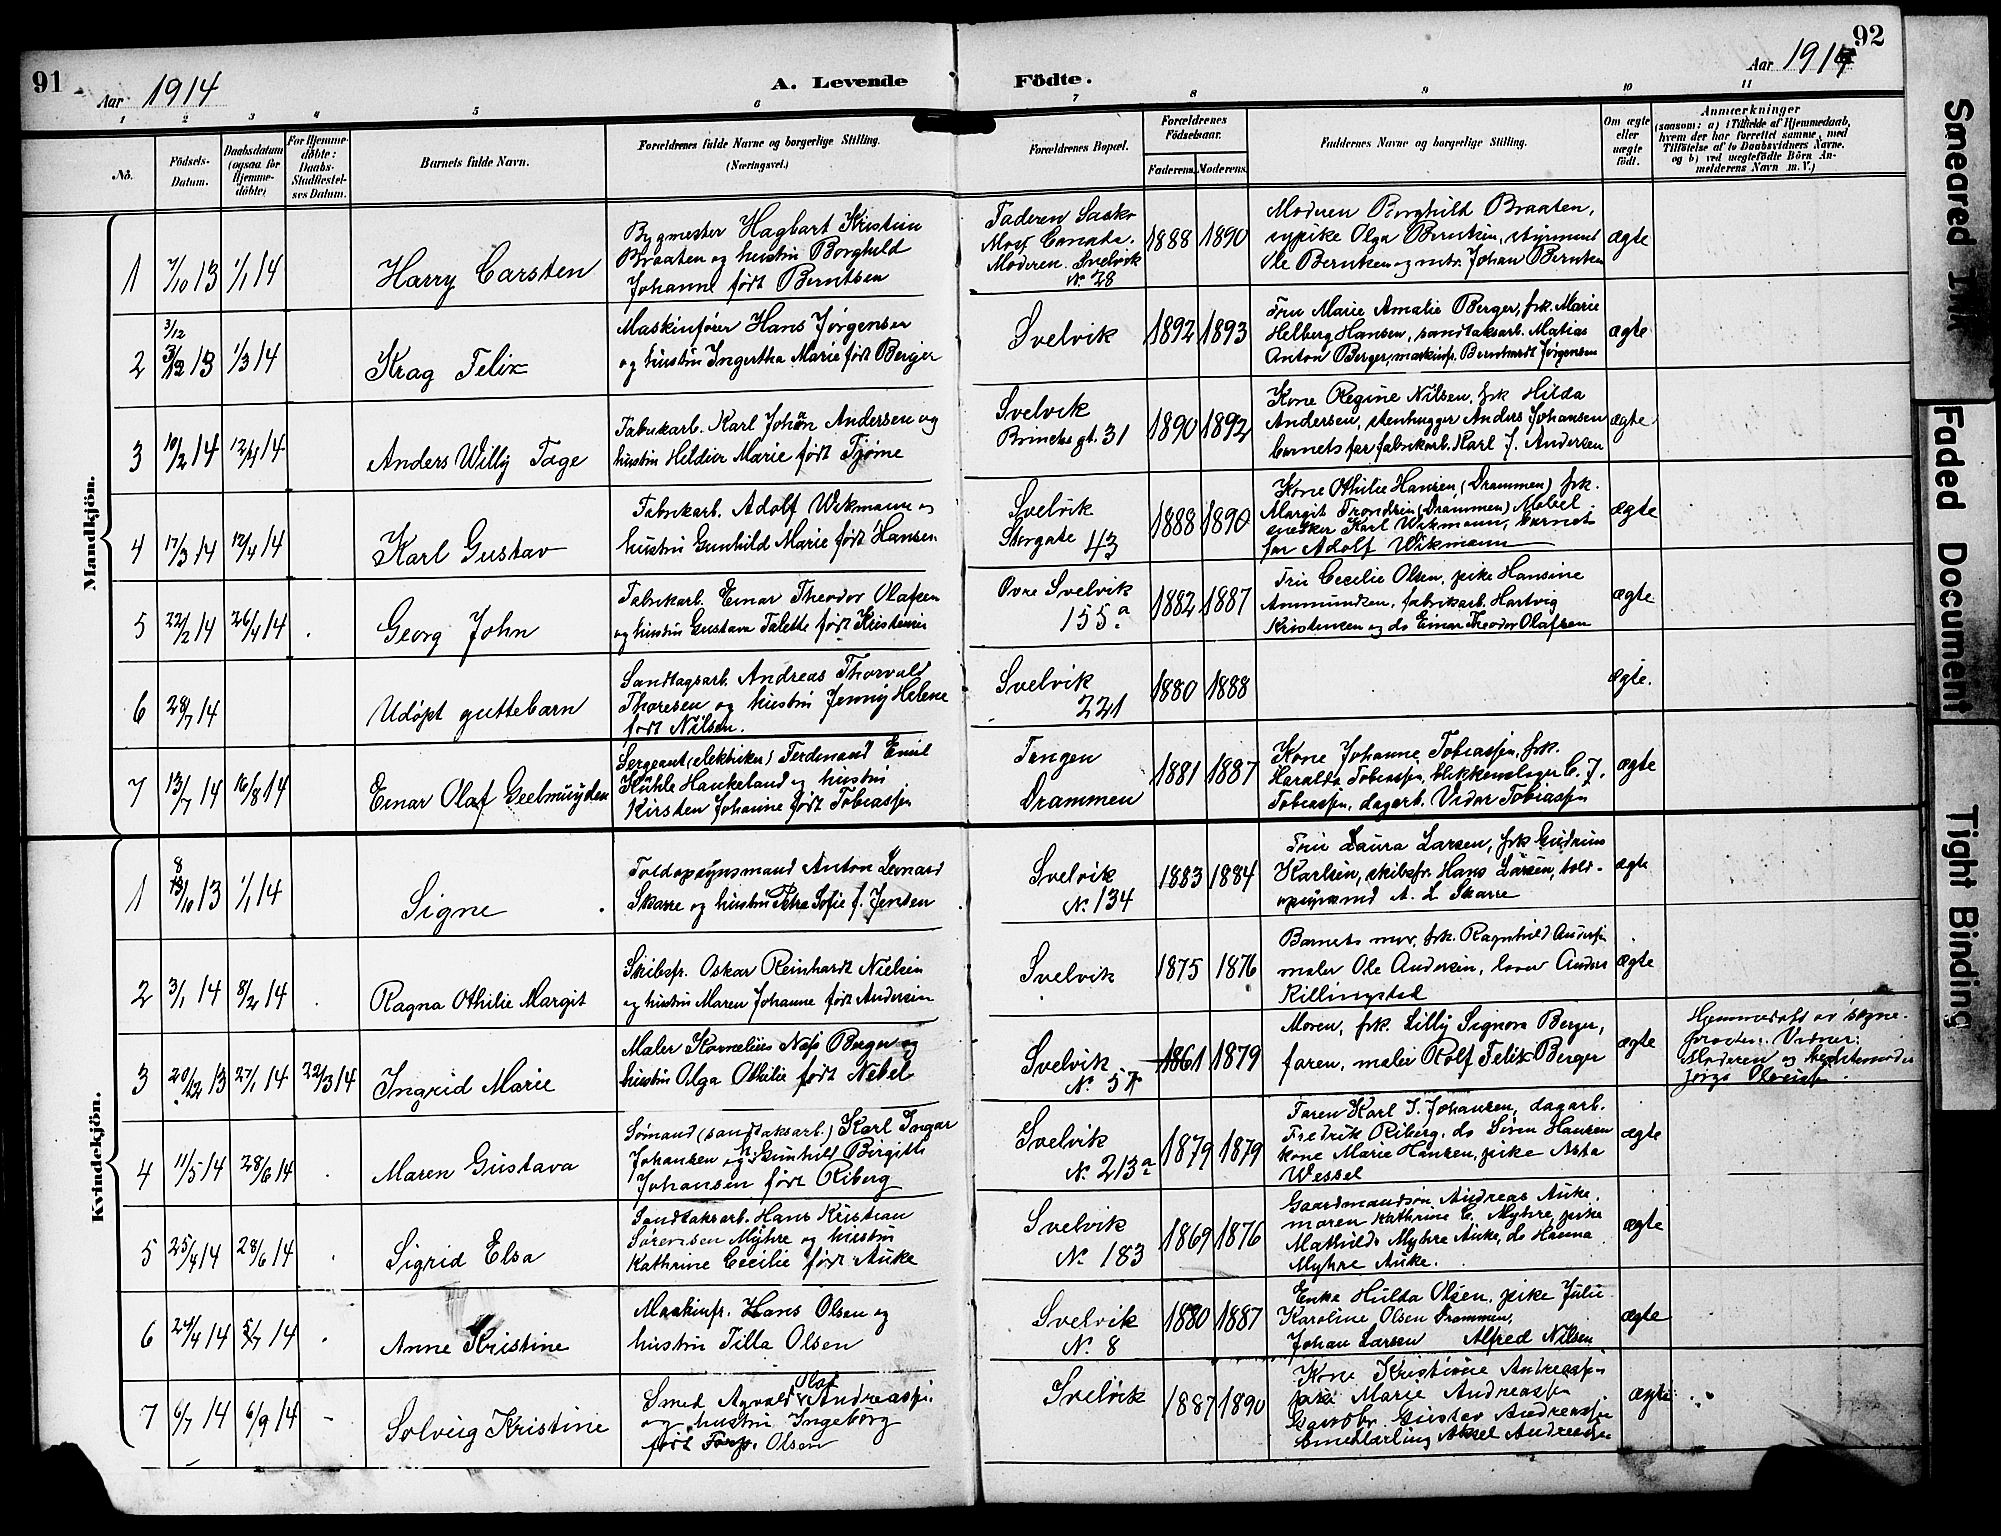 91
Aar 1914
A. Levende
Födte.
Aar 1914
92
1
2
3
4
5
6
7
8
9
10
11
No.
Födsels-
Datum.
Daabsdatum
(ogsaa for
Hjemme-
döbte)
For Hjemme-
döbte:
Daabs-
Stadfæstel-
ses Datum.
Barnets fulde Navn.
Forældrenes fulde Navne og borgerlige Stilling.
(Næringsvei.)
Forældrenes Bopæl.
Forældrenes
Födselsaar.
Faderens.
Moderens.
Faddernes Navne og borgerlige Stilling.
Om ægte
eller
uægte
födt.
Anmærkninger
(saasom: a) i Tilfælde af Hjemmedaab,
hvem der har forrettet samme, med
Tilföielse af to Daabsvidners Navne.
og b) ved uægtefödte Börn An-
melderens Navn m. V.)
Mandkjön.
1
7/10 13
1/1 14
Harry Carsten
Bygmester Hagbart Kristian
Braaten og hustru Borghild
Johanne født Berntsen
Faderen Saskr
Canada.
Moderen. Svelvik
No. 28
1888
1890
Moderen Borghild Braaten,
sypike Olga Berntsen, styrmand
Ole Berntsen og mtr. Johan Berntsen
ægte
2
3/12
3/12 13
1/3 14
Krag Felix
Maskinfører Hans Jørgensen
og hustru Ingertha Marie født Berger
Svelvik
1892
1893
Fru Marie Amalie Berger, frk. Marie
Helberg Hansen, sandtaksarb. Matias
Anton Berger, maskinf. Bernhardt Jørgensen
ægte
3
10/2 14
12/4 14
Anders Willy Tage
Fabrikarb. Karl Johan Andersen og
hustru Heldior Marie født Tjøme
Svelvik
Brinchs gt. 31
1890
1892
Kone Regine Nilsen, frk Hilda
Andersen, stenhugger Anders Johansen
barnets far fabrikarb. Karl J. Andersen
ægte
4
17/3 14
12/4 14
Karl Gustav
Fabrikarb. Adolf Wikmann og
hustru Gunhild Marie født Hansen
Svelvik
Storgate 43
1888
1890
Kone Othilie Hansen (Drammen) frk.
Margit Trondsen (Drammen) Møbel
snekker Karl Wikmann, barnets
far Adolf Wikmann
ægte
5
22/2 14
26/4 14
Georg John
Fabrikarb. Einar Theodor Olafsen
og hustru Gustava Talette født Kristensen
Øvre Svelvik
155 a
1882
1887
Fru Cecilie Olsen, pike Hansine
Ammundsen, fabrikarb. Hartvig
Kristensen og do Einar Theodor Olafsen
ægte
6
28/7 14
Udøpt guttebarn
Sandtagsarb. Andreas Thorvald
Thoresen og hustru Jenny Helene
født Nilsen.
Svelvik
221
1880
1888
ægte.
7
13/7 14
16/8 14
Einar Olaf Geelmuyden
Sergeant (elektriker) Ferdinand Emil
Kühle Haukeland og hustru
Kirsten Johanne født Tobiassen
Tangen
Drammen
1881
1887
Kone Johanne Tobiassen, frk.
Haralda Tobiassen, blikkenslager C. J.
Tobiassen, dagarb. Vidar Tobiassen
ægte
Kvindekjön.
1
8
13/10 13
1/1 14
Signe
Toldopsynsmand Anton Leonard
Skarre og hustru Petra Sofie f. Jensen
Svelvik
No. 134
1883
1884
Fru Laura Larsen, frk Gudrun
Karlsen, skibsfr. Hans Larsen, told-
opsynsmd A. L Skarre
ægte
2
3/1 14
8/2 14
Ragna Othilie Margit
Skibsfr. Oskar Reinhardt Nielsen
og hustru Maren Johanne født Andersen
Svelvik
1875
1876
Barnets mor, frk. Ragnhild Andersen
maler Ole Andersen, laver Anders
Killingstad
ægte
3
20/12 13
27/1 14
22/3 14
Ingrid Marie
Maler Kornelius Næs Berger og
hustru Olga Othilie født Nebel
Svelvik
No. 57
1861
1879
Moren, frk. Lilly Signora Berger,
faren, maler Rolf Felix Berger
ægte
Hjemmedøbt av sogne-
presten. Vidner:
Moderen og
4
11/5 14
28/6 14
Maren Gustava
Sømand (sandtaksarb.) Karl Ingar
Johansen og h. Gunhild Birgitte
Johansen født Riberg
Svelvik
No. 213 a
1879
1879
Faren Karl I. Johansen, dagarb.
Fredrik Riberg, do Søren Hansen
kone Marie Hansen, pike Asta
Wessel
ægte
5
25/4 14
28/6 14
Sigrid Elsa
Sandtaksarb. Hans Kristian
Sørensen Myhre og hustru
Kathrine Cecilie født Auke
Svelvik
No. 183
1869
1876
Gaardmandsøn Andreas Auke,
moren Kathrine C. Myhre, pike
Mathilde Myhre Auke, do Hanna
Myhre Auke.
ægte
6
24/4 14
5/7 14
Anne Kristine
Maskinfr. Hans Olsen og
hustru Tilla Olsen
Svelvik
No. 8
1880
1887
Enke Hulda Olsen, pike Julie
Karoline Olsen Drammen,
Johan Larsen Alfred Nilsen
ægte
7
6/7 14
6/9 14
Solveig Kristine
Smed Agvald Olaf Andreassen
og hustru Ingeborg
født Olsen
Svelvik
1887
1890
Kone Kristiane Andreassen
pike Marie Andreassen
Gustav Andreassen
Smedlærling Aksel Andreassen
ægte
Smeared Ink
Faded Document
Tight Binding